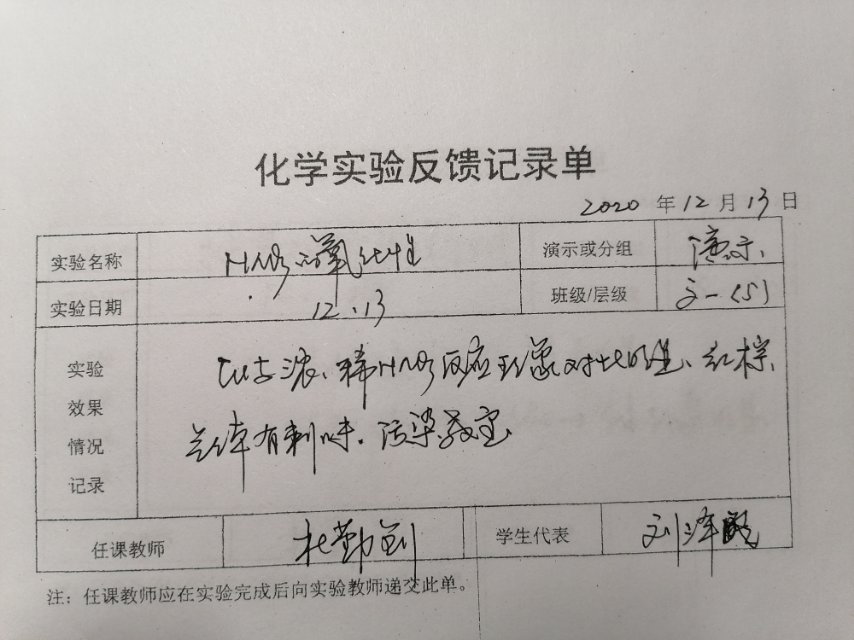 化学实验反馈记录单
2020 年 12 月 13 日
实验名称 HNO3的氧化性 演示或分组 演示
实验日期 12.13 班级/层级 高一(5)
实验效果情况记录
Cu与浓、稀HNO3反应现象对比明显、红棕
气体有刺味、污染教室
任课教师 杜勤 学生代表 刘泽
注：任课教师应在实验完成后向实验教师递交此单。